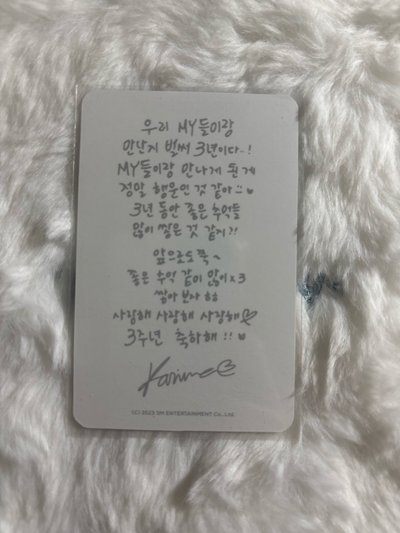 우리 MY들이랑
만난지 벌써 3년이다-!
MY들이랑 만나게 된게
정말 행운인것 같아 ♥
3년 동안 좋은 추억들
많이 쌓은 것 같지?!
앞으로도 쭉~
좋은 추억 같이 많이x3
쌓아 보자 ㅎㅎ
사랑해 사랑해 사랑해♡
3주년 축하해 !! ♥
Karina
(C) 2023 SM ENTERTAINMENT Co., Ltd.